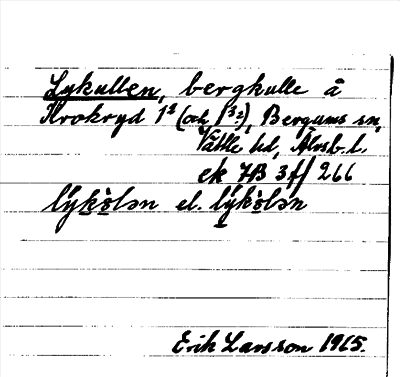 Lykullen, bergkulle å
Krokryd 1² (och 1³²), Bergums sn,
Vättle hd, Älvsb. l.
ek 7B 3f/266
lýkö̀lən el. lýkö̀lən
Erik Larsson 1965.